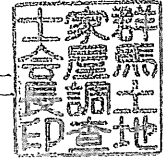 群馬土地
家屋調査
士会長印